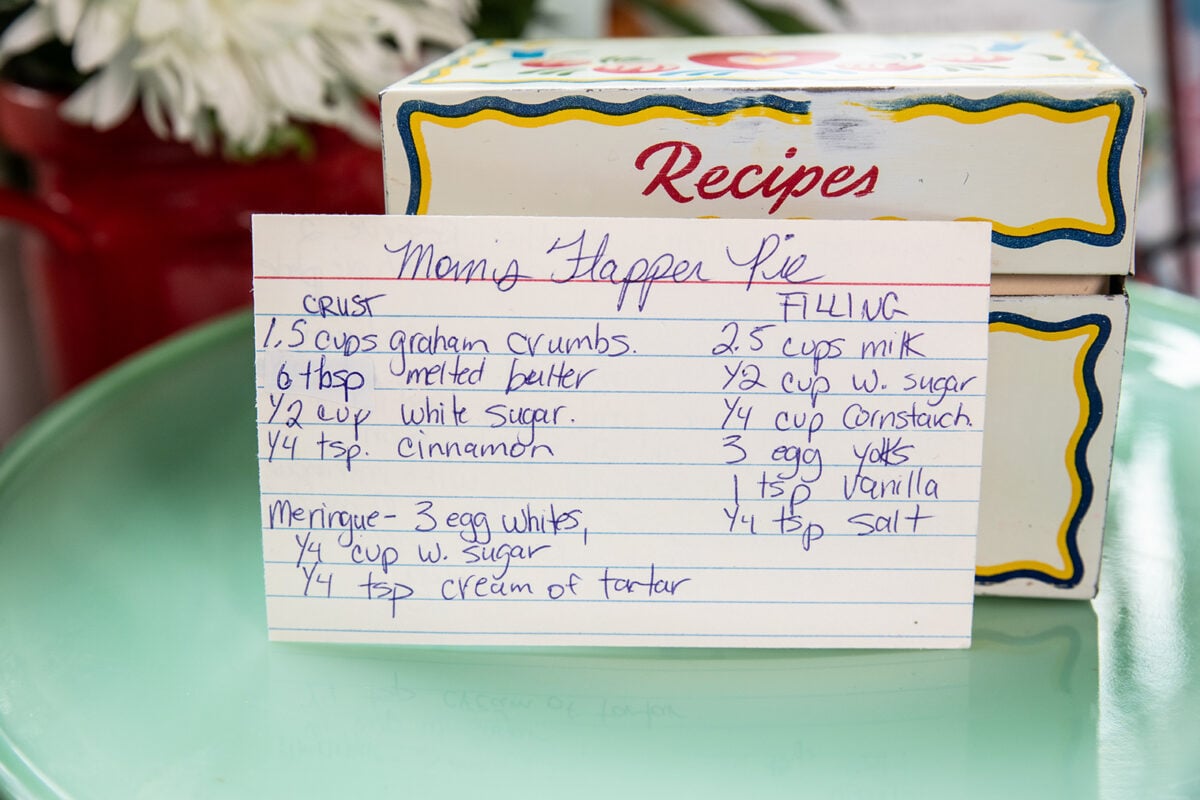 Recipes
Mom's Flapper Pie
CRUST
1.5 cups graham crumbs.
6 tbsp melted butter
1/2 cup white sugar.
1/4 tsp. cinnamon
Meringue - 3 egg whites,
1/4 cup w. sugar
1/4 tsp cream of tartar
FILLING
2.5 cups milk
1/2 cup w. sugar
1/4 cup cornstarch.
3 egg yolks
1 tsp vanilla
1/4 tsp salt